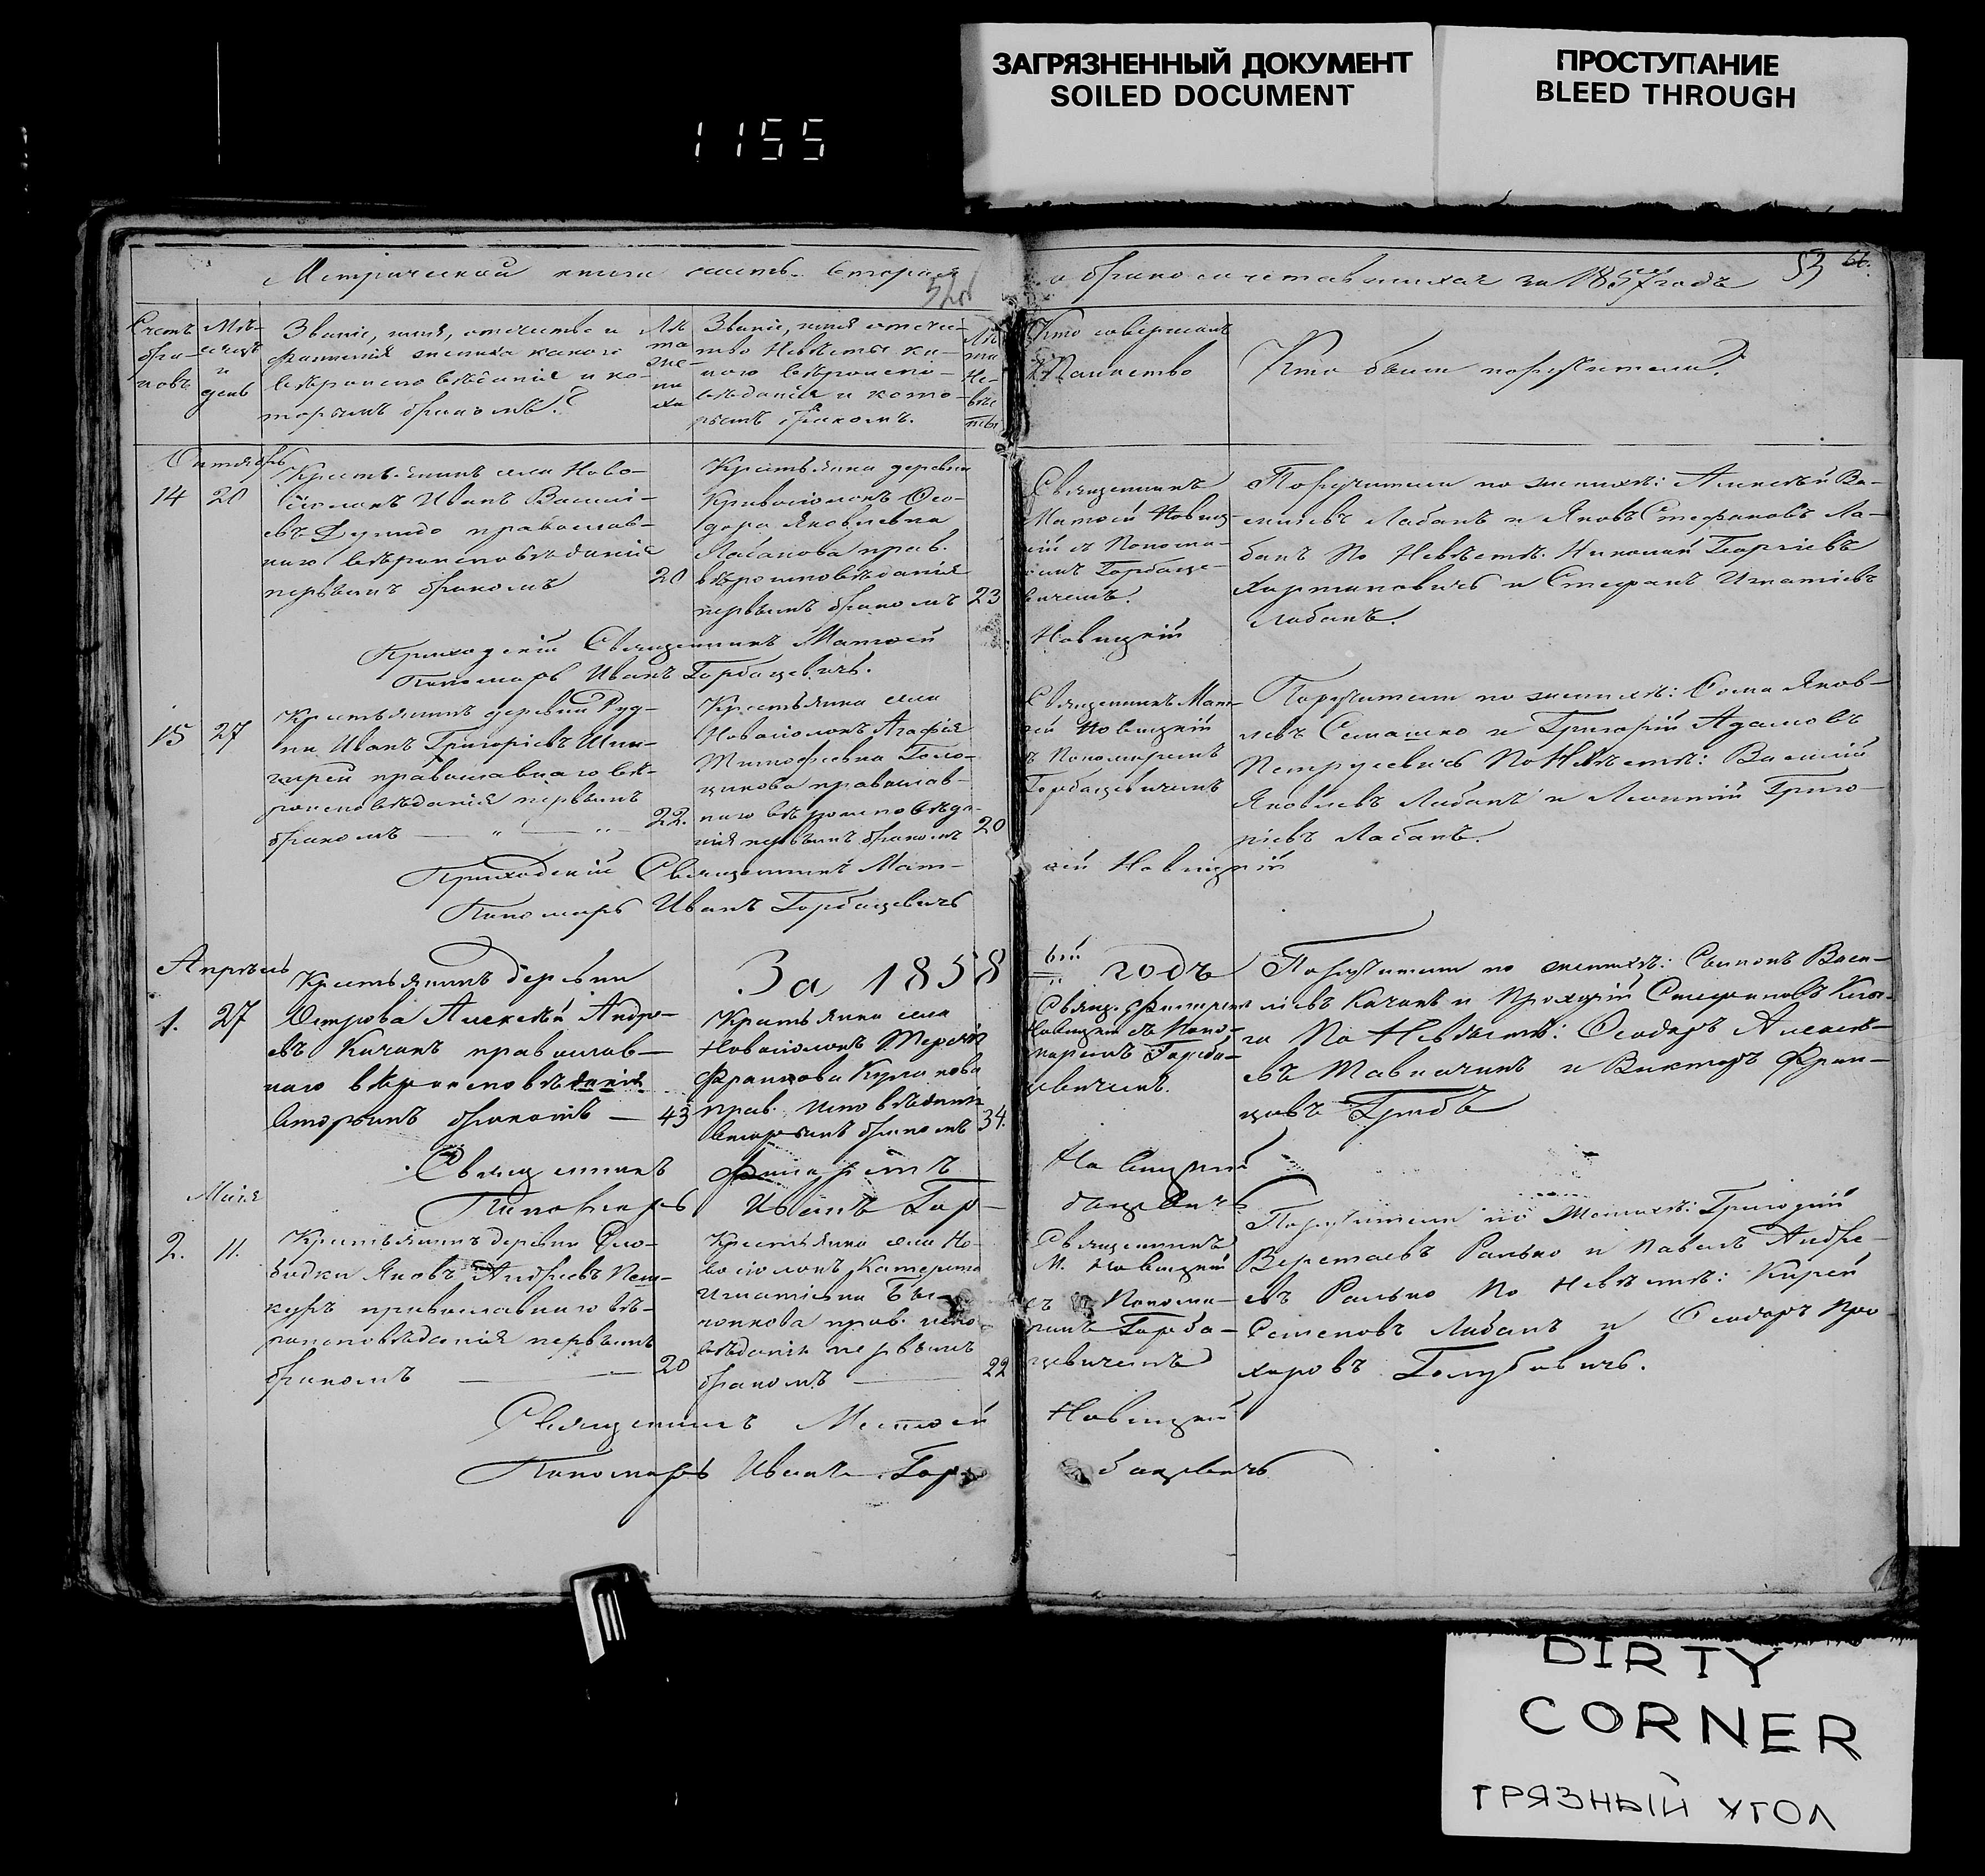 ЗАГРЯЗНЕННЫЙ ДОКУМЕНТ
SOILED DOCUMENT
ПРОСТУПАНИЕ
BLEED THROUGH
1155
Метрической книги часть вторая
о бракосочетавшихся за 1857 годъ
53
Счетъ браковъ
Мѣсяцъ и день
Званіе, имя, отчество и
фамилія жениха какого
вѣроисповѣданія и ко-
торымъ бракомъ?
Лѣта жениха
Званіе, имя отече-
ство Невѣсты ка-
кого вѣроиспо-
вѣданія и кото-
рымъ бракомъ.
Лѣта Невѣсты
Кто совершалъ
Таинство
Кто были поручители?
Октябрь
14 20
Крестьянинъ села Ново-
сіолокъ Иванъ Васили-
евъ православ-
наго вѣроисповѣданія
первымъ бракомъ
20
Крестьянка деревни
Кривосіолокъ Ѳео-
дора Яковлевна
Лабанова прав.
вѣроисповѣданія
первымъ бракомъ
23
Священникъ
Матѳей Новиц-
кій съ Понома-
ремъ Горбаце-
вичемъ.
Поручители по женихѣ: Алексѣй Ва-
сильевъ Лабанъ и Яковъ Стефановъ Ла-
банъ По Невѣстѣ: Николай Георгіевъ
Хартановичъ и Стефанъ Игнатіевъ
Лабанъ.
Приходскій Священникъ Матѳей Новицкій
Пономарь Иванъ Горбацевичъ.
15 27
Крестьянинъ деревни Руд-
ни Иванъ Григоріевъ
православнаго вѣ-
роисповѣданія первымъ
бракомъ
22.
Крестьянка села
Новосіолокъ Агафія
Тимоѳеевна
православ-
наго вѣроисповѣда-
нія первымъ бракомъ
20
Священникъ Мат-
ѳей Новицкій
съ Пономаремъ
Горбацевичемъ
Поручители по женихѣ: Ѳома Яков-
левъ Семашко и Григорій Адамовъ
Петрусевичъ По Невѣстѣ: Василій
Яковлевъ Лабанъ и Леонтій Григо-
ріевъ Лабанъ.
Приходскій Священникъ Мат-
ѳей Новицкій
Пономарь Иванъ Горбацевичъ
За 1858 ой годъ
Апрѣль
1. 27
Крестьянинъ деревни
Острова Алексѣй Андре-
евъ Качанъ православ-
наго вѣроисповѣданія
вторымъ бракомъ — 43
Крестьянка села
Новосіолокъ
Францова
прав. исповѣданія
вторымъ бракомъ 34.
Свящ.
Новицкій съ Поно-
маремъ Горба-
цевичемъ.
Поручители по женихѣ: Семионъ Васи-
ліевъ Качанъ и Прохорій Стефановъ
По Невѣстѣ: Ѳеодоръ Алексѣ-
евъ и Викторъ Фран-
цовъ Грибъ
Священникъ Новицкій
Пономарь Иванъ Гор-
бацевичъ
Маія
2. 11.
Крестьянинъ деревни Сло-
бодки Яковъ Андреевъ
православнаго вѣ-
роисповѣданія первымъ
бракомъ — 20
Крестьянка села Но-
восіолокъ Катерина
Игнатіевна
прав. испо-
вѣданія первымъ
бракомъ — 22
Священникъ
М. Новицкій
съ Понома-
ремъ Горба-
цевичемъ
Поручители по Женихѣ: Григорій
и Павелъ Андре-
евъ По Невѣстѣ: Кирей
Семеновъ Лабанъ и Ѳеодоръ Про-
хоровъ Голубовичъ.
Священникъ Матѳей Новицкій
Пономарь Иванъ Гор-
бацевичъ
DIRTY
CORNER
ГРЯЗНЫЙ УГОЛ